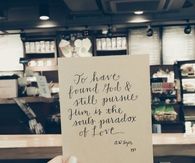 To have
found God &
still pursue
Him is the
souls paradox
of Love